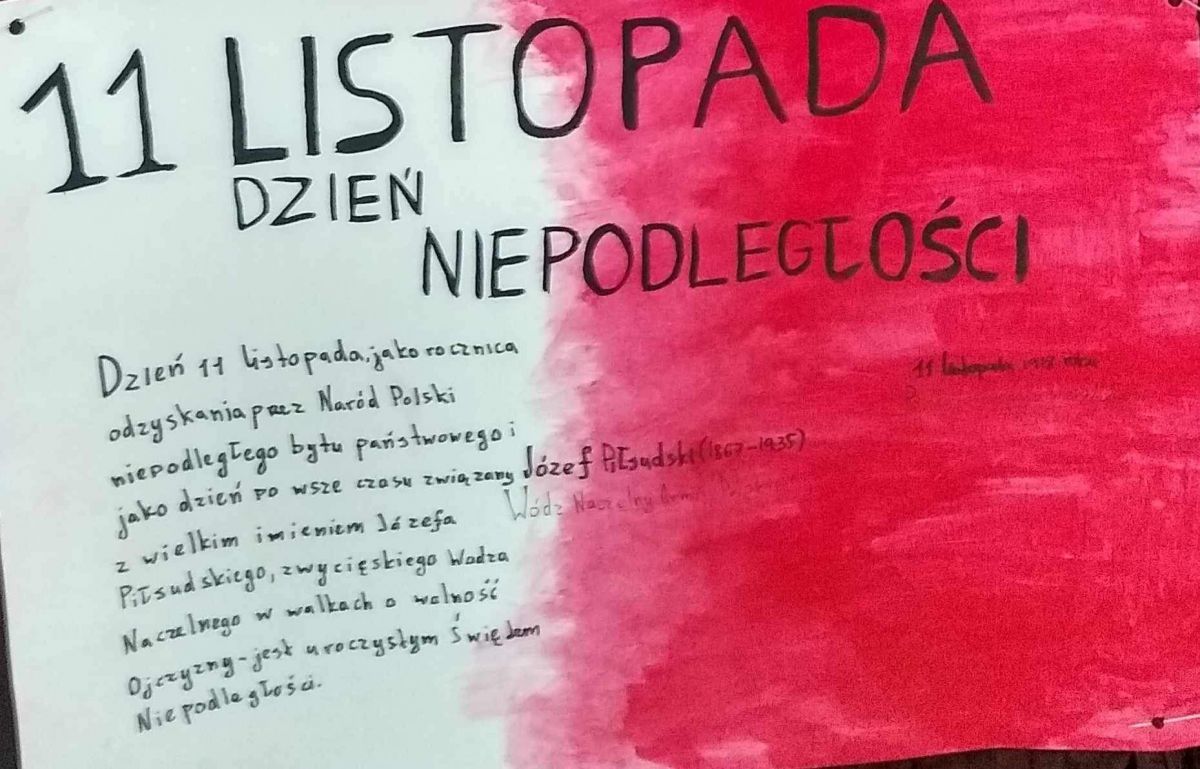 11 LISTOPADA
DZIEŃ
NIEPODLEGŁOŚCI
Dzień 11 listopada, jako rocznica
odzyskania przez Naród Polski
niepodległego bytu państwowego i
jako dzień po wsze czasu związany
z wielkim imieniem Józefa
Piłsudskiego, zwycięskiego Wodza
Naczelnego w walkach o wolność
Ojczyzny - jest uroczystym Świędem
Niepodległości.
Józef Piłsudski (1867-1935)
Wódz Naczelny
11 listopada 1918 roku